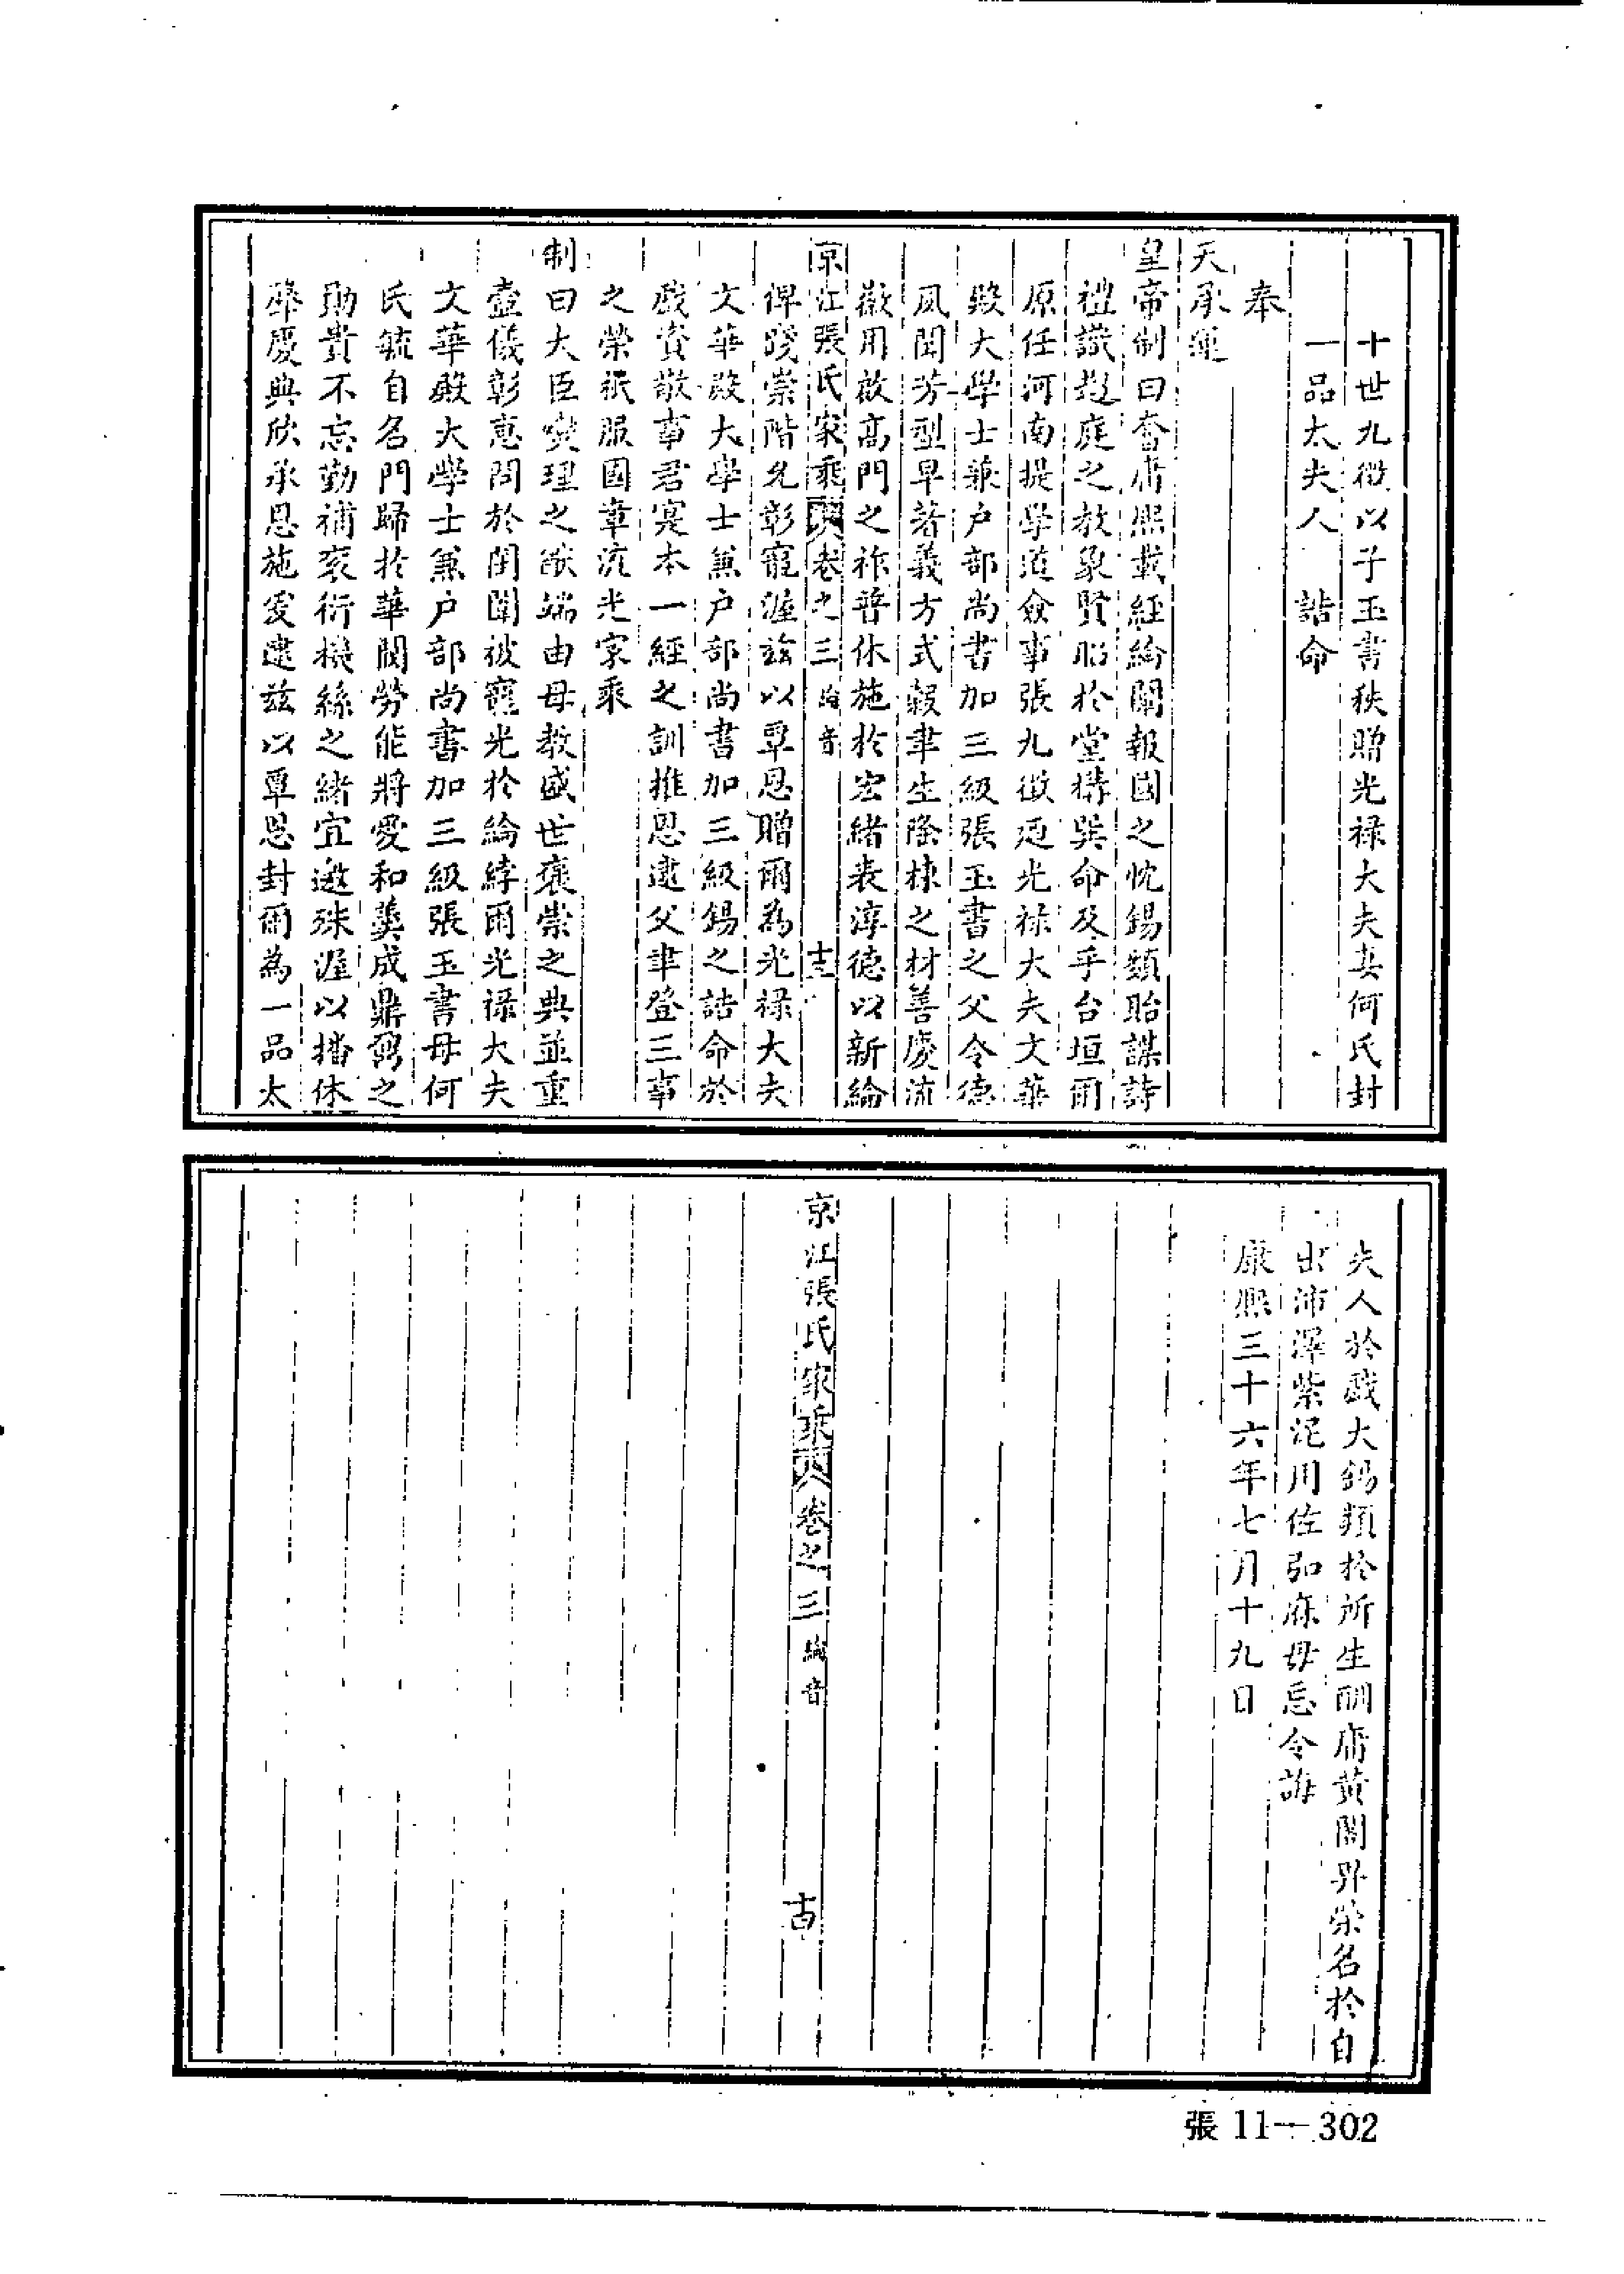 十世九徵以子玉書秩贈光禄大夫妻何氏封
一品太夫人　誥命
奉
天承運
皇帝制曰奮庸熙載經綸闡報國之忱錫類貽謀詩
禮識趨庭之教象賢貽於堂構巽命及乎台垣爾
原任河南提學道僉事張九徵迺光禄大夫文華
殿大學士兼户部尚書加三級張玉書之父令德
夙聞芳型早著義方式穀聿生隆棟之材善慶流
徽用啟高門之祚晉休施於宏緒表淳德以新綸
京江張氏家乘　卷之三　綸音　十三
俾陟崇階允彰寵渥兹以覃恩贈爾為光禄大夫
文華殿大學士兼户部尚書加三級錫之誥命於
戲資敬事君寔本一經之訓推恩逮父聿登三事
之榮祇服國章流光家乘
制曰大臣爕理之猷端由母教盛世褒崇之典並重
壼儀彰惠問於閨闈被寵光於綸綍爾光禄大夫
文華殿大學士兼户部尚書加三級張玉書母何
氏毓自名門歸於華閥勞能將愛和羹成鼎鼐之
勛貴不忘勤補衮衍機絲之緒宜邀殊渥以播休
聲慶典欣承恩施爰逮兹以覃恩封爾為一品太
夫人於戲大錫類於所生酬庸黄閣昇榮名於自
出沛澤紫泥用佐弘庥毋忘令誨
康熙三十六年七月十九日
京江張氏家乘　卷之三　綸音　十四
張 11—302